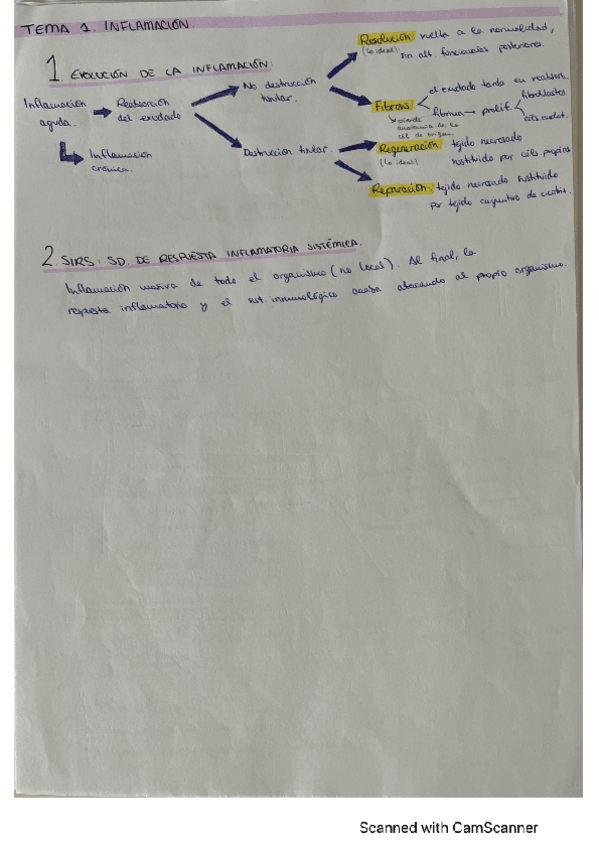 TEMA 1. INFLAMACIÓN.
1. EVOLUCIÓN DE LA INFLAMACIÓN:
Inflamación aguda.
Reabsorción del exudado
Inflamación crónica.
No destrucción tisular.
Resolución: vuelta a la normalidad,
(lo ideal) sin alt. funcionales posteriores.
Fibrosis
el exudado tarda en reabsorb.
fibrina → prolif.
fibroblastos
céls. endot.
pierde anatomía de la cél de origen
Destrucción tisular.
Regeneración: tejido necrosado
(lo ideal) sustituido por céls. propias
Reparación: tejido necrosado sustituido
por tejido conjuntivo de cicatriz.
2. SIRS: SD. DE RESPUESTA INFLAMATORIA SISTÉMICA.
Inflamación masiva de todo el organismo (no local). Al final, la
respuesta inflamatoria y el sist. inmunológico acaba atacando al propio organismo.
Scanned with CamScanner